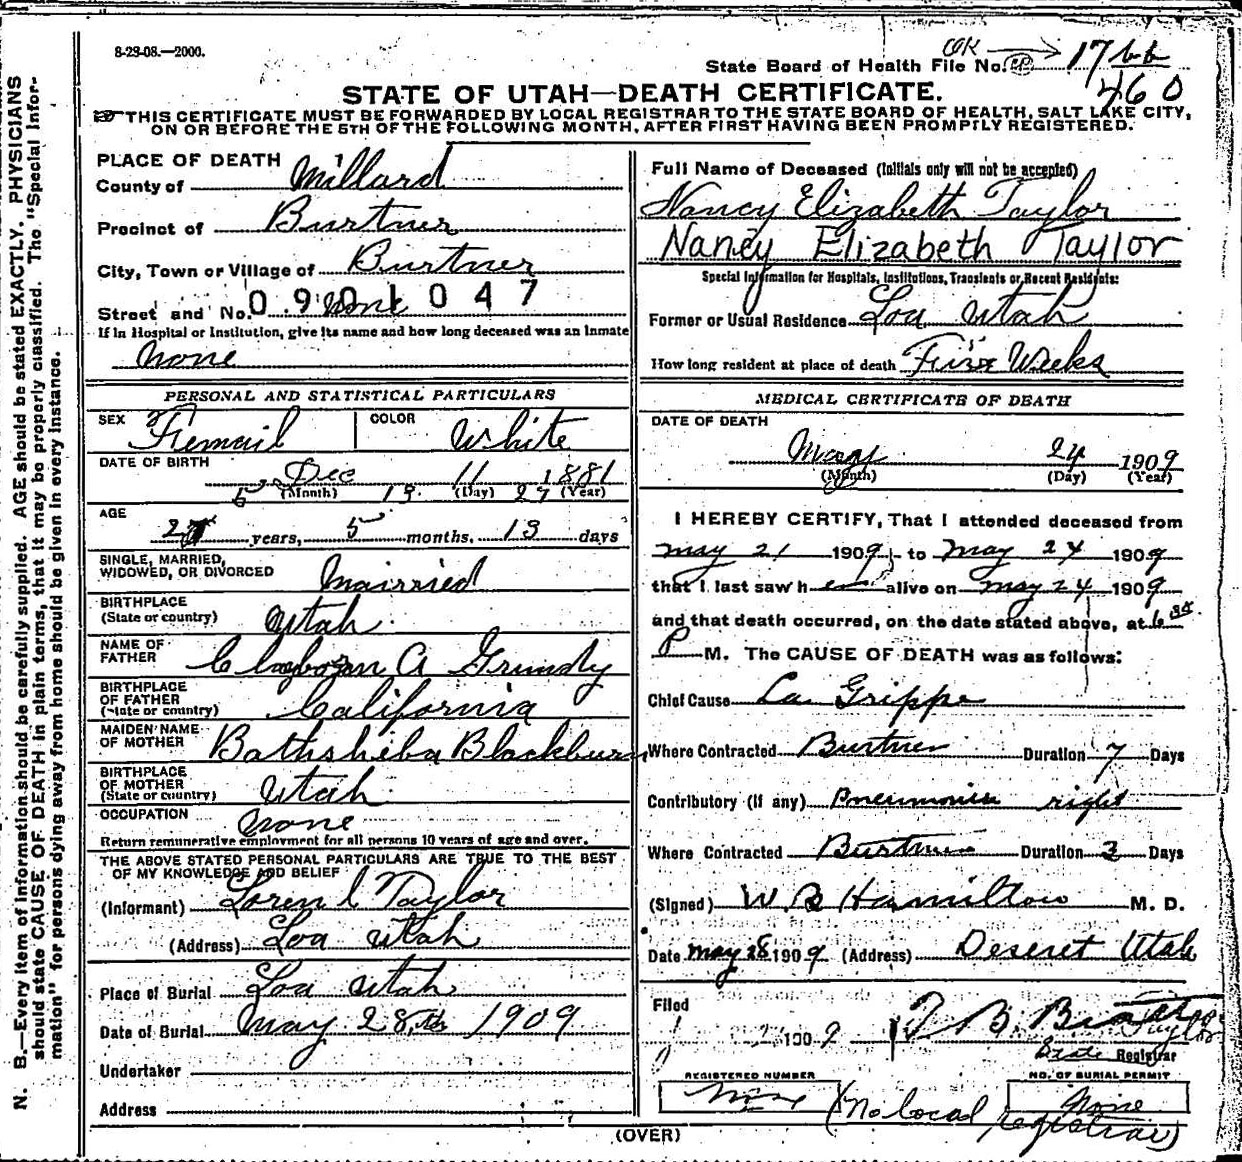 8-23-08.—2000.
OK
State Board of Health File No. 1766
460
STATE OF UTAH—DEATH CERTIFICATE.
THIS CERTIFICATE MUST BE FORWARDED BY LOCAL REGISTRAR TO THE STATE BOARD OF HEALTH, SALT LAKE CITY,
ON OR BEFORE THE 5TH OF THE FOLLOWING MONTH, AFTER FIRST HAVING BEEN PROMPTLY REGISTERED.
N. B.—Every item of information should be carefully supplied. AGE should be stated EXACTLY. PHYSICIANS
should state CAUSE OF DEATH in plain terms, that it may be properly classified. The "Special Infor-
mation" for persons dying away from home should be given in every instance.
PLACE OF DEATH
County of Millard
Precinct of Burtner
City, Town or Village of Burtner
Street and No. none
0901047
If in Hospital or Institution, give its name and how long deceased was an Inmate
none
PERSONAL AND STATISTICAL PARTICULARS
SEX Femail COLOR White
DATE OF BIRTH
Dec 11 1881
5 (Month) 13 (Day) 27 (Year)
AGE
27 years, 5 months, 13 days
SINGLE, MARRIED,
WIDOWED, OR DIVORCED Mairried
BIRTHPLACE
(State or country) Utah
NAME OF
FATHER Clayborn A Grundy
BIRTHPLACE
OF FATHER
(State or country) California
MAIDEN NAME
OF MOTHER Bathsheba Blackburn
BIRTHPLACE
OF MOTHER
(State or country) Utah
OCCUPATION none
Return remunerative employment for all persons 10 years of age and over.
THE ABOVE STATED PERSONAL PARTICULARS ARE TRUE TO THE BEST
OF MY KNOWLEDGE AND BELIEF
(Informant) Loren l Taylor
(Address) Loa Utah
Place of Burial Loa Utah
Date of Burial May 28th 1909
Undertaker
Address
Full Name of Deceased (Initials only will not be accepted)
Nancy Elizabeth Taylor
Nancy Elizabeth Taylor
Special Information for Hospitals, Institutions, Transients or Recent Residents:
Former or Usual Residence Loa Utah
How long resident at place of death Five Weeks
MEDICAL CERTIFICATE OF DEATH
DATE OF DEATH
May 24 1909
(Month) (Day) (Year)
I HEREBY CERTIFY, That I attended deceased from
may 21 1909 to may 24 1909
that I last saw her alive on may 24 1909
and that death occurred, on the date stated above, at 6 30
P M. The CAUSE OF DEATH was as follows:
Chief Cause La Grippe
Where Contracted Burtner Duration 7 Days
Contributory (if any) Pneumonia right
Where Contracted Burtner Duration 3 Days
(Signed) W B Hamilton M. D.
Date may 28 1909 (Address) Deseret Utah
Filed
1909 T B Beatty
State Registrar
REGISTERED NUMBER NO. OF BURIAL PERMIT
None None
(no local registrar)
(OVER)